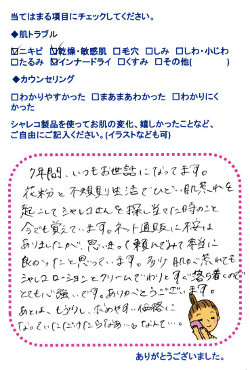 当てはまる項目にチェックしてください。
◆肌トラブル
☑ニキビ ☑乾燥・敏感肌 □毛穴 □しみ □しわ・小じわ
□たるみ ☑インナードライ □くすみ □その他( )
◆カウンセリング
□わかりやすかった □まあまあわかった □わかりにく
かった
シャレコ製品を使ってお肌の変化、嬉しかったことなど、
ご自由にご記入ください。(イラストなども可)
7年間、いつもお世話になってます。
花粉と不規則な生活でひどい肌荒れを
起こしてシャレコさんを探し当てた時のこと
今でも覚えています。ネット通販に不安は
ありましたが、思い切って頼んでみて本当に
良かったと思っています。多少肌が荒れても
シャレコローションとクリームでわりとすぐ落ち着くので
とても心強いです。ありがとうございます。
あとは、もう少し、ためやすい価格に
なっていただけたらなあ〜。なんて…。
ありがとうございました。